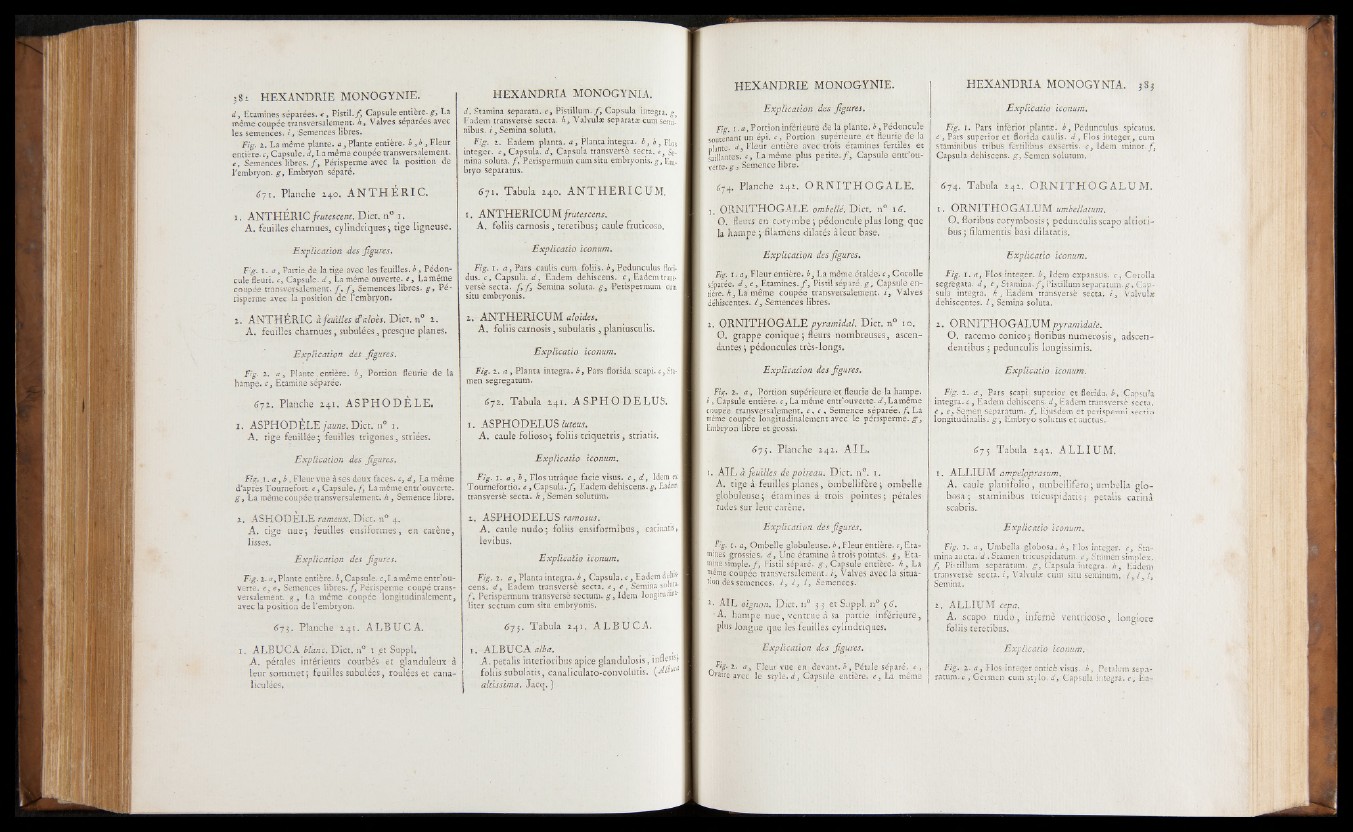 382 HEXANDRIE MONOGYNIE.
d, Etamines séparées. e, Pistil. f, Capsule entière. g, La
même coupée transversalement. h, Valves séparées avec
les semences. i, Semences libres.
Fig. 2. La même plante. a, Plante entière. b, b, Fleur
entière. c, Capsule. d, La même coupée transversalement.
e, Semences libres. f, Périsperme avec la position de
l'embryon. g, Embryon séparé.
671. Planche 240. ANTHÉRIC.
1. ANTHÉRIC frutescent. Dict. n° 1.
A. feuilles charnues, cylindriques; tige ligneuse.
Explication des figures.
Fig. 1. a, Partie de la tige avec les feuilles. b, Pédon-
cule fleuri. c, Capsule. d, La même ouverte. e, La même
coupée transversalement. f, f, Semences libres. g, Pé-
risperme avec la position de l'embryon.
2. ANTHÉRIC à feuilles d'aloès. Dict. n° 2.
A. feuilles charnues, subulées, presque planes.
Explication des figures.
Fig. 2. a, Plante entière. b, Portion fleurie de la
hampe. c, Etamine séparée.
672. Planche 241. ASPHODÈLE.
1. ASPHODÈLE jaune. Dict. n° 1.
A. tige feuillée; feuilles trigones, striées.
Explication des figures.
Fig. 1. a, b, Fleur vue à ses deux faces. c, d, La même
d'après Tournefort. e, Capsule. f, La même entr'ouverte.
g, La même coupée transversalement. h, Semence libre.
2. ASHODÈLE rameux. Dict. n° 4.
A. tige nue; feuilles ensiformes, en carène,
lisses.
Explication des figures.
Fig. 2. a, Plante entière. b, Capsule. c, La même entr'ou-
verte. e, e, Semences libres. f, Périsperme coupé trans-
versalement. g, La même coupée longitudinalement,
avec la position de l'embryon.
673. Planche 241. ALBUCA.
1. ALBUCA blanc. Dict. n° 1 et Suppl.
A. pétales intérieurs courbés et glanduleux à
leur sommet; feuilles subulées, roulées et cana-
liculées.
HEXANDRIA MONOGYNIA.
d, Stamina separata. e, Pistillum. f, Capsula integra. g,
Eadem transversè secta. h, Valvulæ separatæ cum semi-
nibus. i, Semina soluta.
Fig. 2. Eadem planta. a, Planta integra. b, b, Flos
integer. c, Capsula. d, Capsula transversè secta. e, Se-
mina soluta. f, Perispermum cum situ embryonis. g, Em-
bryo separatus.
671. Tabula 240. ANTHERICUM.
1. ANTHERICUM frutescens.
A. foliis carnosis, teretibus; caule fruticoso.
Explicatio iconum.
Fig. 1. a, Pars caulis cum foliis. b, Pedunculus flori-
dus. c, Capsula. d, Eadem dehiscens. e, Eadem trans-
versè secta. f, f, Semina soluta. g, Perispermum cum
situ embryonis.
2. ANTHERICUM aloides.
A. foliis carnosis, subulatis, planiusculis.
Explicatio iconum.
Fig. 2. a, Planta integra. b, Pars florida scapi. c, Sta-
men segregatum.
672. Tabula 241. ASPHODELUS.
1. ASPHODELUS luteus.
A. caule folioso; foliis triquetris, striatis.
Explicatio iconum.
Fig. 1. a, b, Flos utràque facie visus. c, d, Idem ex
Tournefortio. e, Capsula. f, Eadem dehiscens. g, Eadem
transversè secta. h, Semen solutum.
2. ASPHODELUS ramosus.
A. caule nudo; foliis ensiformibus, carinatis,
levibus.
Explicatio iconum.
Fig. 2. a, Planta integra. b, Capsula. c, Eadem dehis-
cens. d, Eadem transversè secta. e, e, Semina soluta.
f, Perispermum transversè sectum. g, Idem longitudina-
liter sectum cum situ embryonis.
673. Tabula 241. ALBUCA.
1. ALBUCA alba.
A. petalis interioribus apice glandulosis, inflexis;
foliis subulatis, canaliculato-convolutis. (Albuca
altissima. Jacq.)
HEXANDRIE MONOGYNIE.
Explication des figures.
Fig. 1. a, Portion inférieure de la plante. b, Pédoncule
soutenant un épi. c, Portion supérieure et fleurie de la
plante. d, Fleur entière avec trois étamines fertiles et
saillantes. e, La même plus petite. f, Capsule entr'ou-
verte. g, Semence libre.
674. Planche 242. ORNITHOGALE.
1. ORNITHOGALE ombellé. Dict. n° 16.
O. fleurs en corymbe; pédoncule plus long que
la hampe; filamens dilatés à leur base.
Explication des figures.
Fig. 1. a, Fleur entière. b, La même étalée. c, Corolle
séparée. d, e, Etamines. f, Pistil séparé. g, Capsule en-
tière. h, La même coupée transversalement. i, Valves
déhiscentes. l, Semences libres.
2. ORNITHOGALE pyramidal. Dict. n° 10.
O. grappe conique; fleurs nombreuses, ascen-
dantes; pédoncules très-longs.
Explication des figures.
Fig. 2. a, Portion supérieure et fleurie de la hampe.
b, Capsule entière. c, La même entr'ouverte. d, La même
coupée transversalement. e, e, Semence séparée. f, La
même coupée longitudinalement avec le périsperme. g,
Embryon libre et grossi.
675. Planche 242. AIL.
1. AIL à feuilles de poireau. Dict. n°. 1.
A. tige à feuilles planes, ombellifère; ombelle
globuleuse; étamines à trois pointes; pétales
rudes sur leur carène.
Explication des figures.
Fig. 1. a, Ombelle globuleuse. b, Fleur entière. c, Eta-
mines grossies. d, Une étamine à trois pointes. e, Eta-
mine simple. f, Pistil séparé. g, Capsule entière. h, La
même coupée transversalement. i, Valves avec la situa-
tion des semences. l, l, l, Semences.
2. AIL oignon. Dict. n° 33 et Suppl. n° 56.
A. hampe nue, ventrue à sa partie inférieure,
plus longue que les feuilles cylindriques.
Explication des figures.
Fig. 2. a, Fleur vue en devant. b, Pétale séparé. c,
Ovaire avec le style. d, Capsule entière. e, La même
HEXANDRIA MONOGYNIA. 383
Explicatio iconum.
Fig. 1. Pars inferior plantæ. b, Pedunculus spicatus.
c, Pars superior et florida caulis. d, Flos integer, cum
staminibus tribus fertilibus exsertis. e, Idem minor. f,
Capsula dehiscens. g, Semen solutum.
674. Tabula 242. ORNITHOGALUM.
1. ORNITHOGALUM umbellatum.
O. floribus corymbosis; pedunculis scapo altiori-
bus; filamentis basi dilatatis.
Explicatio iconum.
Fig. 1. a, Flos integer. b, Idem expansus. c, Corolla
segregata. d, e, Stamina. f, Pistillum separatum. g, Cap-
sula integra. h, Eadem transversè secta. i, Valvulæ
dehiscentes. l, Semina soluta.
2. ORNITHOGALUM pyramidale.
O. racemo conico; floribus numerosis, adscen-
dentibus; pedunculis longissimis.
Explicatio iconum.
Fig. 2. a, Pars scapi superior et florida. b, Capsula
integra. c, Eadem dehiscens. d, Eadem transversè secta.
e, e, Semen separatum. f, Ejusdem et perispermi sectio
longitudinalis. g, Embryo solutus et auctus.
675 Tabula 242. ALLIUM.
1. ALLIUM ampeloprasum.
A. caule planifolio, umbellifero; umbella glo-
bosa; staminibus tricuspidatis; petalis carinâ
scabris.
Explicatio iconum.
Fig. 1. a, Umbella globosa. b, Flos integer. c, Sta-
mina aucta. d, Stamen tricuspidatum. e, Stamen simplex.
f, Pistillum separatum. g, Capsula integra. h, Eadem
transversè secta. i, Valvulæ cum situ seminum. l, l, l,
Semina.
2. ALLIUM cepa.
A. scapo nudo, infernè ventricoso, longiore
foliis teretibus.
Explicatio iconum.
Fig. 2. a, Flos integer anticè visus. b, Petalum sepa-
ratum. c, Germen cum stylo. d, Capsula integra. e, Ea-